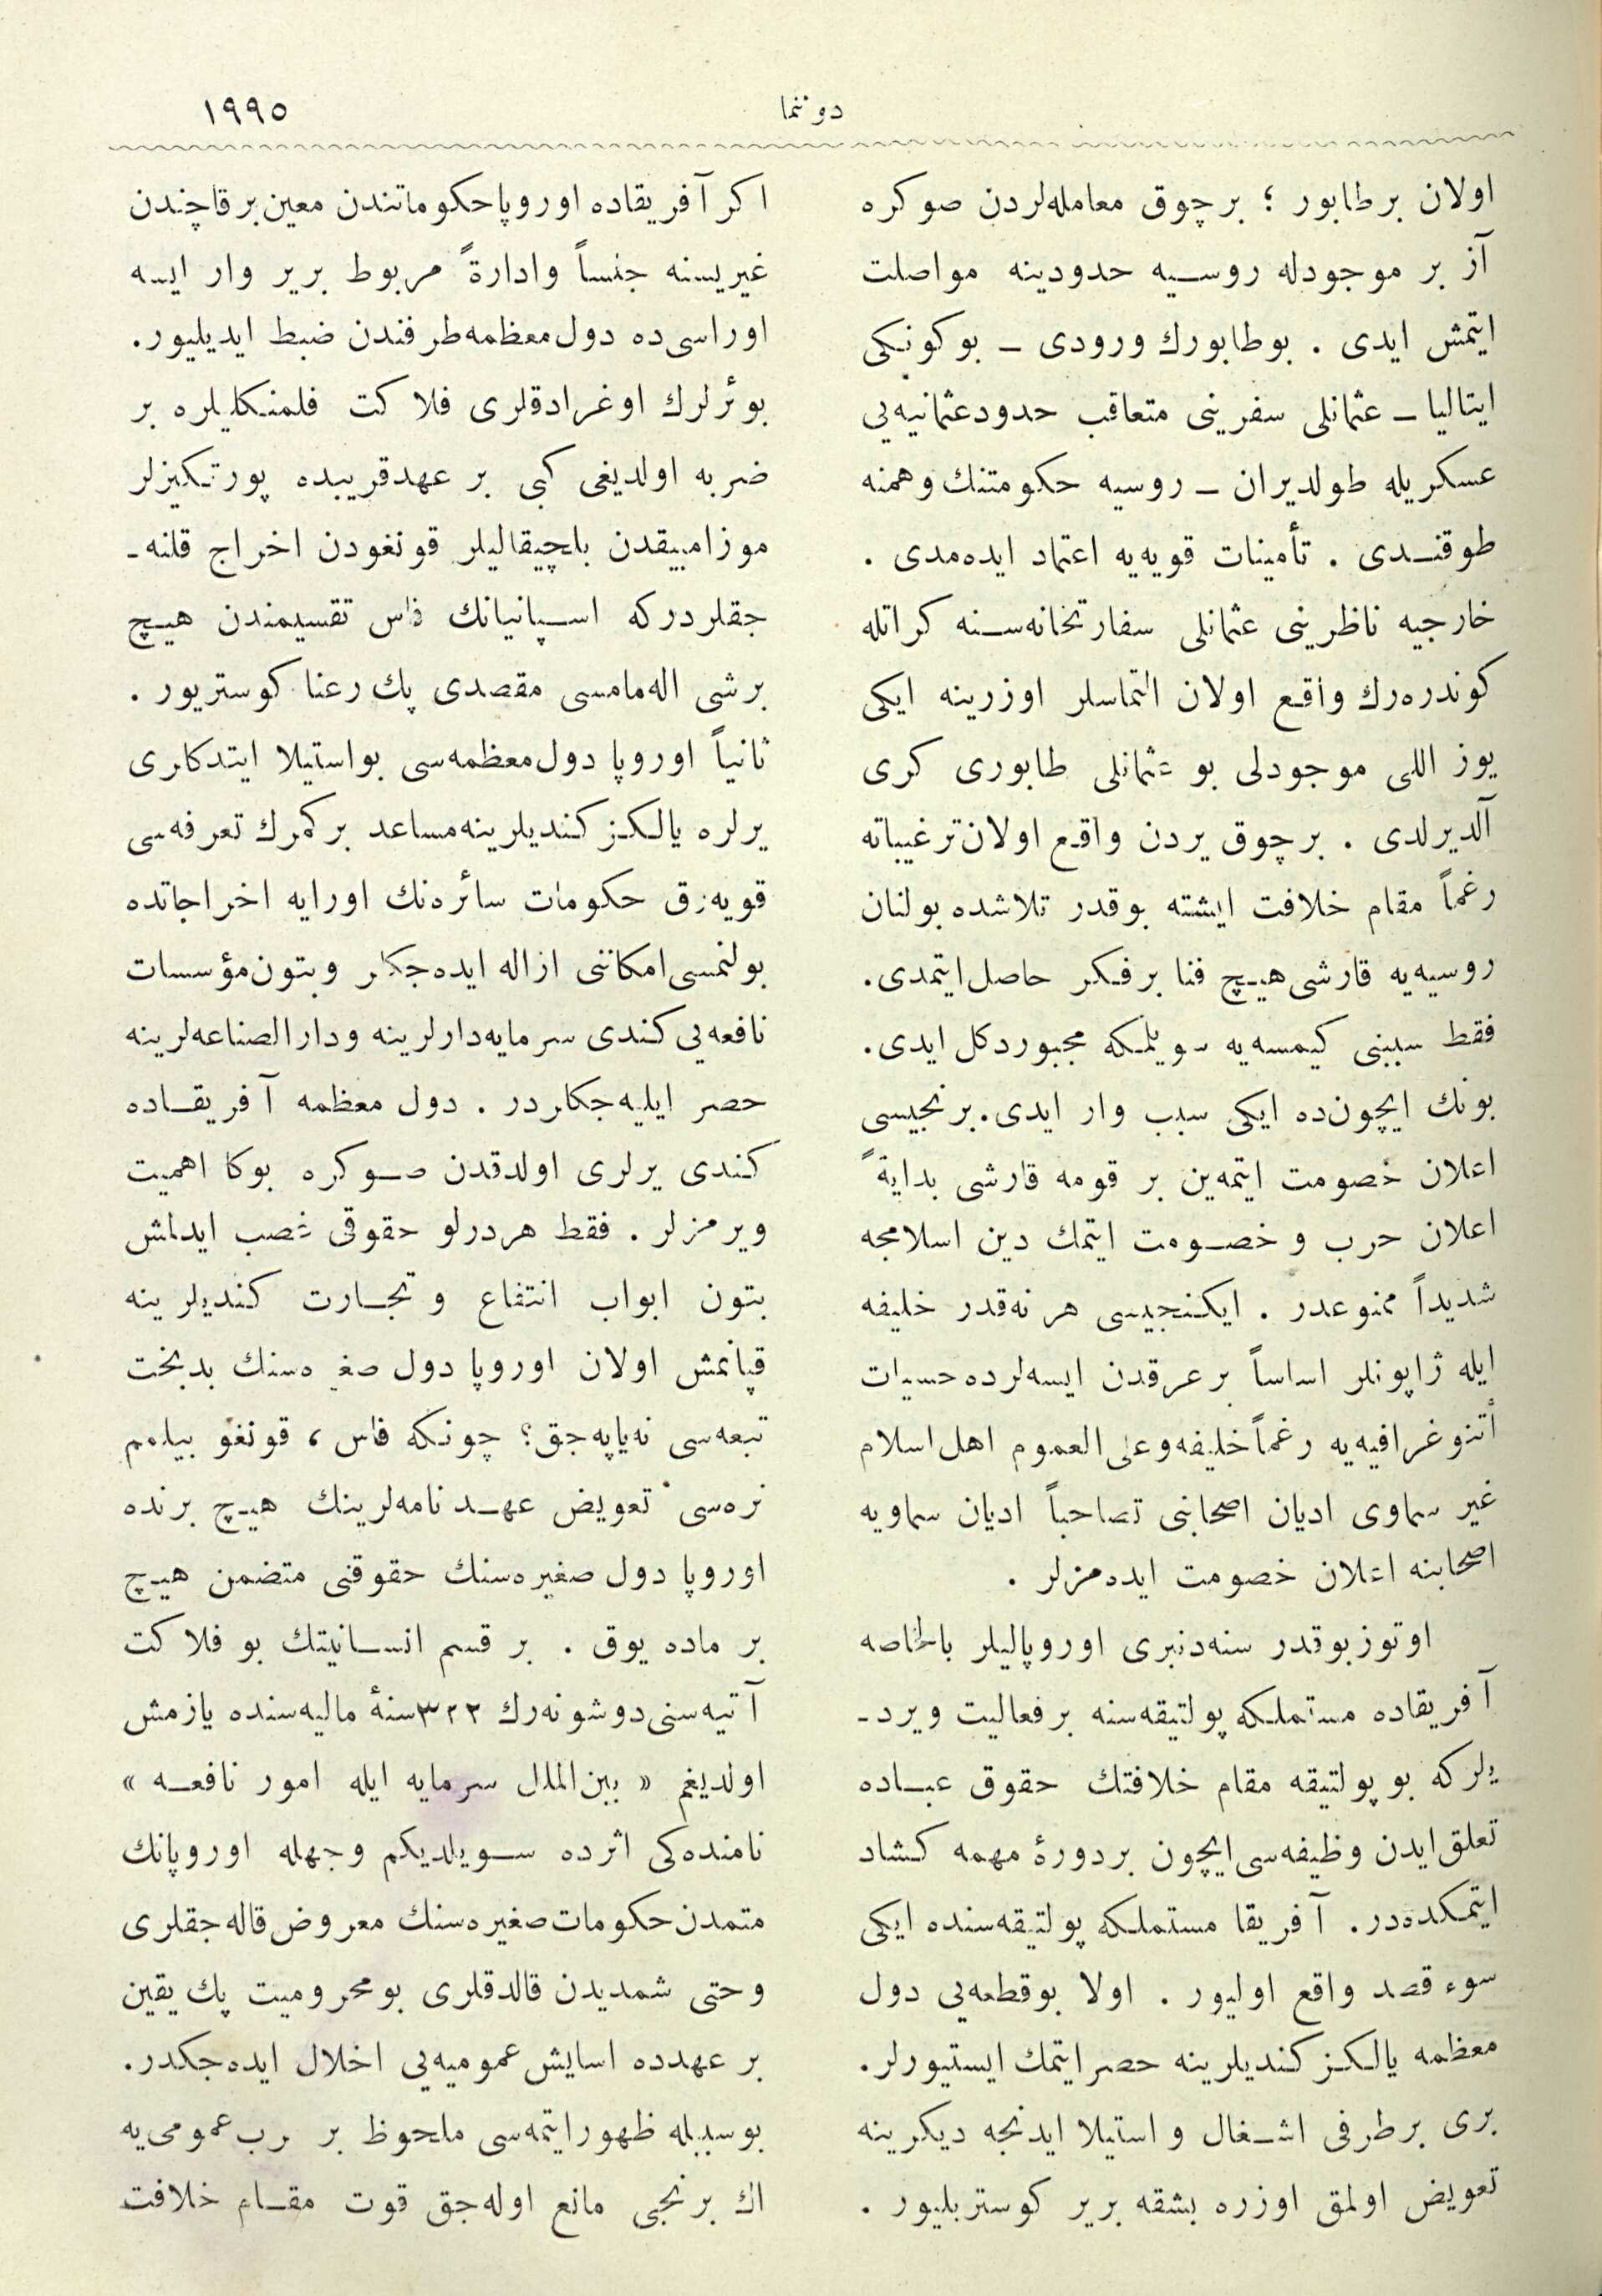 دوننما
١٩٩٥
اولان برطابور ؛ برچوق معامله‌لردن صوكره
آز بر موجودله روسيه حدودينه مواصلت
ايتمش ايدى . بوطابورك ورودى ــ بوكونكى
ايتاليا ــ عثمانلى سفرينى متعاقب حدودعثمانيه‌يى
عسكريله طولديران ــ روسيه حكومتنك وهمنه
طوقنـدى . تأمينات قويه‌يه اعتماد ايده‌مدى .
خارجيه ناظرينى عثمانلى سفارتخانه‌سـنه كراتله
كوندره‌رك واقع اولان التماسلر اوزرينه ايكى
يوز اللى موجودلى بو عثمانلى طابورى كرى
آلديرلدى . برچوق يردن واقع اولان‌ترغيباته
رغماً مقام خلافت ايشته بوقدر تلاشده بولنان
روسيه‌يه قارشى هيـچ فنا برفـكر حاصل‌ايتمدى.
فقط سببنى كيمسه‌يه سويلمكه مجبوردكل ايدى.
بونك ايچون‌ده ايكى سبب وار ايدى. برنجيسى
اعلان خصومت ايتمه‌ين بر قومه قارشى بدايةً
اعلان حرب و خصـومت ايتمك دين اسلامجه
شديداً ممنوعدر . ايكـنجيسى هر نه‌قدر خليفه
ايله ژاپونلر اساساً بر عرقدن ايسه‌لرده حسيات
أتنوغرافيه‌يه رغماً خليفه‌وعلى‌العموم اهل‌اسلام
غير سماوى اديان اصحابنى تصاحباً اديان سماويه
اصحابنه اعلان خصومت ايده‌مزلر .
اوتوز بوقدر سنه‌دنبرى اوروپاليلر باخاصه
آفريقاده مستملكه پولتيقه‌سنه برفعاليت ويرد-
يلر كه بو پولتيقه مقام خلافتك حقوق عبـاده
تعلق‌ايدن وظيفه‌سى‌ايچون بردورۀ مهمه كشاد
ايتمكده‌در. آفريقا مستملكه پولتيقه‌سنده ايكى
سوء قصد واقع اوليور . اولا بوقطعه‌يى دول
معظمه يالكـز كنديلرينه حصرايتمك ايستيورلر.
برى برطرفى اشـغال و استيلا ايدنجه ديكرينه
تعويض اولمق اوزره بشقه برير كوستريليور .
اكر آفريقاده اوروپاحكوماتندن معين‌برقاچندن
غيريسنه جنساً وادارةً مربوط برير وار ايسه
اوراسى‌ده دول‌معظمه‌طرفندن ضبط ايديليور.
بوئرلرك اوغرادقلرى فلاكت فلمنكليلره بر
ضربه اولديغى كبى بر عهدقريبده پورتـكيزلر
موزامبيقدن بلچيقاليلر قونغودن اخراج قلنه-
جقلردركه اسـپانيانك فاس تقسيمندن هيـچ
برشى اله‌مامسى مقصدى پك رعنا كوستريور .
ثانياً اوروپا دول‌معظمه‌سى بواستيلا ايتدكلرى
يرلره يالكـز كنديلرينه‌مساعد بركمرك تعرفه‌سى
قويه‌رق حكومات سائره‌نك اورايه اخراجاتده
بولنمسى‌امكاننى ازاله ايده‌جكلر وبتون‌مؤسسات
نافعه‌يى كندى سرمايه‌دارلرينه ودارالصناعه‌لرينه
حصر ايليه‌جكلردر . دول معظمه آفريقـاده
كندى يرلرى اولدقدن صـوكره بوكا اهميت
ويرمزلر . فقط هردرلو حقوقى غصب ايدلمش
بتون ابواب انتفاع و تجـارت كنديلرينه
قپانمش اولان اوروپا دول صغيره‌سنك بدبخت
تبعه‌سى نه‌ياپه‌جق؟ چونـكه فاس ، قونغو بيلمم
نره‌سى تعويض عهـد نامه‌لرينك هيـچ برنده
اوروپا دول صغيره‌سنك حقوقنى متضمن هيـچ
بر ماده يوق . بر قسم انسـانيتك بو فلاكت
آتيه‌سنى دوشونه‌رك ٣٢٢سنۀ ماليه‌سنده يازمش
اولديغم « بين‌الملل سرمايه ايله امور نافعـه »
نامنده‌كى اثرده سـويلديكم وجهله اوروپانك
متمدن حكومات صغيره‌سنك معروض قاله‌جقلرى
وحتى شمديدن قالدقلرى بومحروميت پك يقين
بر عهدده اسايش عموميه‌يى اخلال ايده‌جكدر.
بوسببله ظهورايتمه‌سى ملحوظ بر حرب عمومى‌يه
اك برنجى مانع اوله‌جق قوت مقـام خلافت